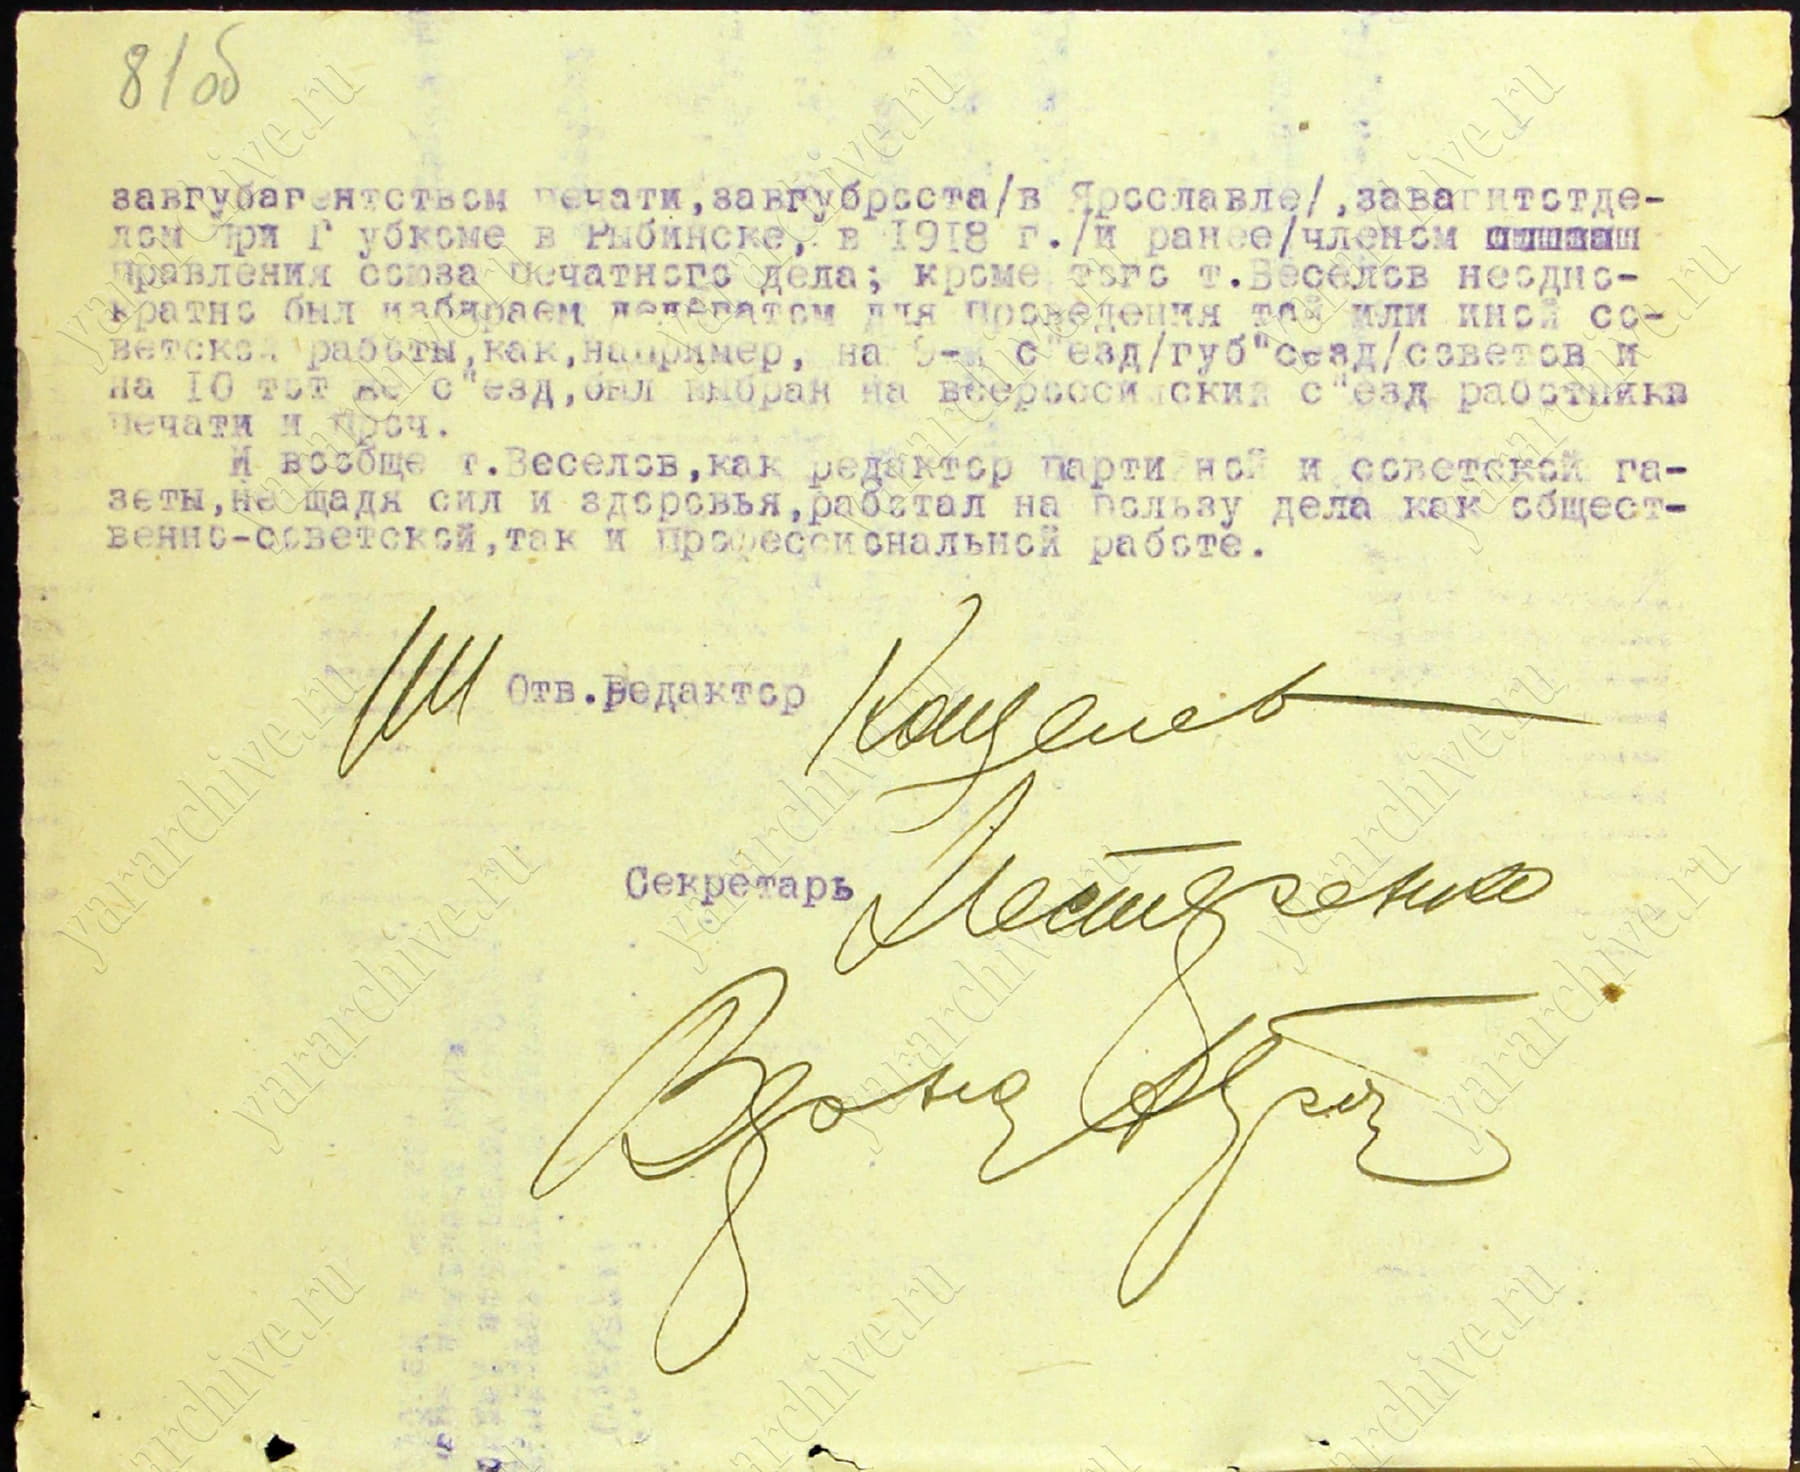 81об
завгубагентством печати,завгуброста/в Ярославле/,завагитотде-
лом при Г убкоме в Рыбинске, в 1918 г./и ранее/членом
правления союза печатного дела; кроме того т.Веселов неодно-
кратно был избираем делегатом для проведения той или иной со-
ветской работы,как,например, на 9-й с"езд/губ"сезд/советов и
на 10 тот же с"езд,был выбран на всероссийский с"езд работникв
печати и проч.
И вообще т.Веселов,как редактор партийной и советской га-
зеты,не щадя сил и здоровья,работал на пользу дела как общест-
венно-советской,так и профессиональной работе.
Отв.редактор
Секретарь Нестеренко
yararchive.ru